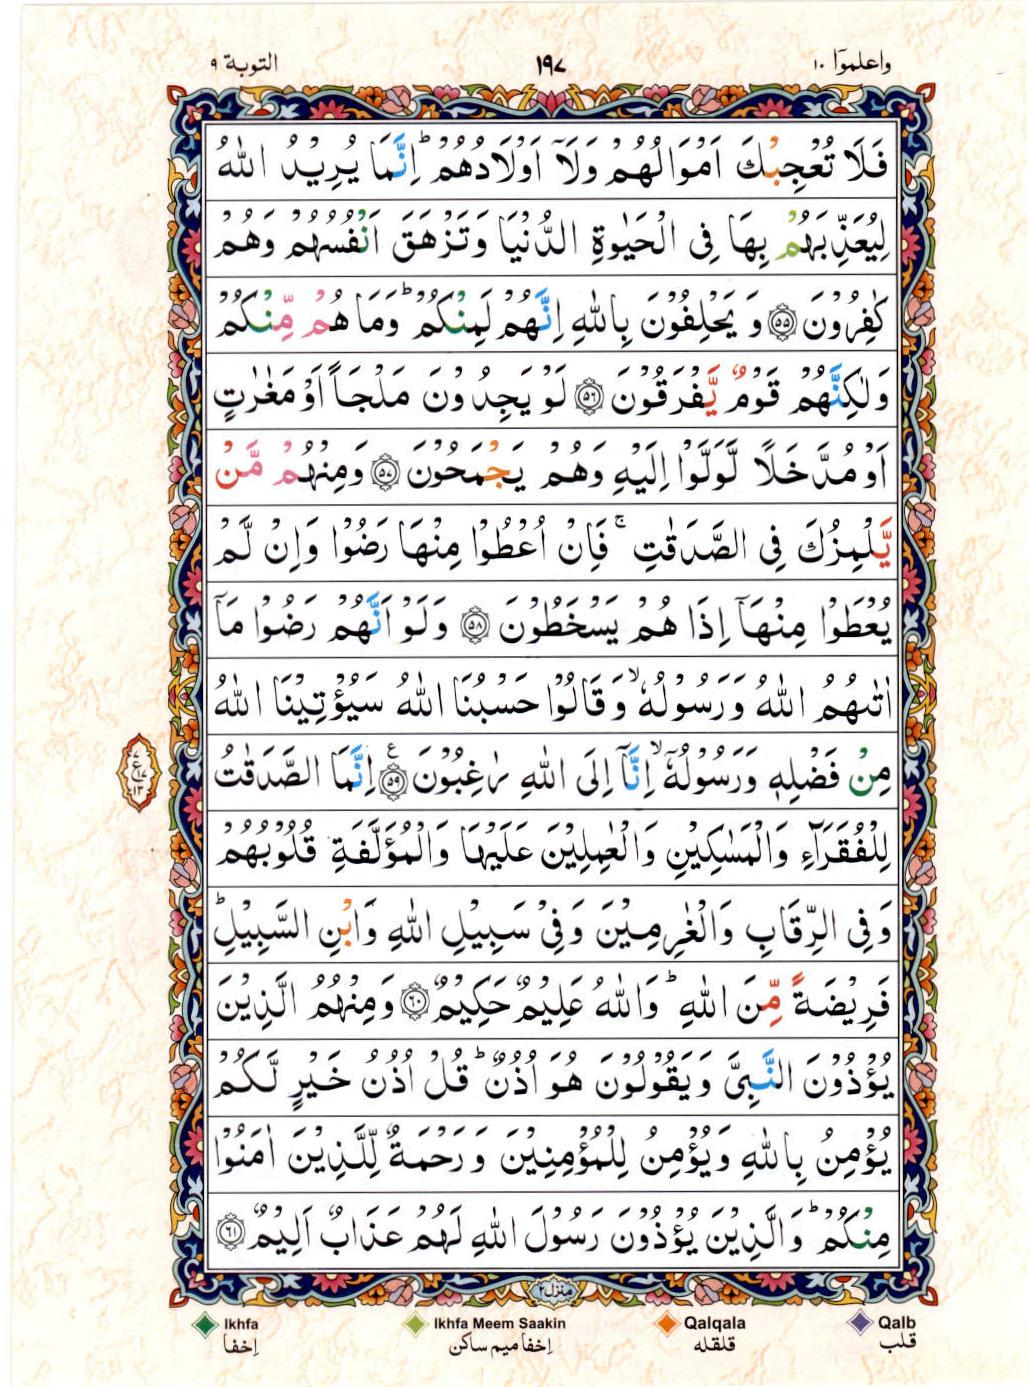 واعلموٓا ١٠ ١٩٧ التوبة ٩
فَلَا تُعْجِبْكَ اَمْوَالُهُمْ وَلَآ اَوْلَادُهُمْ ؕ اِنَّمَا يُرِيْدُ اللّٰهُ
لِيُعَذِّبَهُمْ بِهَا فِى الْحَيٰوةِ الدُّنْيَا وَتَزْهَقَ اَنْفُسُهُمْ وَهُمْ
كٰفِرُوْنَ ۝٥٥ وَيَحْلِفُوْنَ بِاللّٰهِ اِنَّهُمْ لَمِنْكُمْ ؕ وَمَا هُمْ مِّنْكُمْ
وَلٰكِنَّهُمْ قَوْمٌ يَّفْرَقُوْنَ ۝٥٦ لَوْ يَجِدُوْنَ مَلْجَاً اَوْ مَغٰرٰتٍ
اَوْ مُدَّخَلًا لَّوَلَّوْا اِلَيْهِ وَهُمْ يَجْمَحُوْنَ ۝٥٧ وَمِنْهُمْ مَّنْ
يَّلْمِزُكَ فِى الصَّدَقٰتِ ۚ فَاِنْ اُعْطُوْا مِنْهَا رَضُوْا وَاِنْ لَّمْ
يُعْطَوْا مِنْهَآ اِذَا هُمْ يَسْخَطُوْنَ ۝٥٨ وَلَوْ اَنَّهُمْ رَضُوْا مَآ
اٰتٰىهُمُ اللّٰهُ وَرَسُوْلُهٗ ۙ وَقَالُوْا حَسْبُنَا اللّٰهُ سَيُؤْتِيْنَا اللّٰهُ
مِنْ فَضْلِهٖ وَرَسُوْلُهٗٓ ۙ اِنَّآ اِلَى اللّٰهِ رٰغِبُوْنَ ۝٥٩ ع اِنَّمَا الصَّدَقٰتُ
٧ ع ١٧ ١٣
لِلْفُقَرَآءِ وَالْمَسٰكِيْنِ وَالْعٰمِلِيْنَ عَلَيْهَا وَالْمُؤَلَّفَةِ قُلُوْبُهُمْ
وَفِى الرِّقَابِ وَالْغٰرِمِيْنَ وَفِىْ سَبِيْلِ اللّٰهِ وَابْنِ السَّبِيْلِ ؕ
فَرِيْضَةً مِّنَ اللّٰهِ ؕ وَاللّٰهُ عَلِيْمٌ حَكِيْمٌ ۝٦٠ وَمِنْهُمُ الَّذِيْنَ
يُؤْذُوْنَ النَّبِىَّ وَيَقُوْلُوْنَ هُوَ اُذُنٌ ؕ قُلْ اُذُنُ خَيْرٍ لَّكُمْ
يُؤْمِنُ بِاللّٰهِ وَيُؤْمِنُ لِلْمُؤْمِنِيْنَ وَرَحْمَةٌ لِّلَّذِيْنَ اٰمَنُوْا
مِنْكُمْ ؕ وَالَّذِيْنَ يُؤْذُوْنَ رَسُوْلَ اللّٰهِ لَهُمْ عَذَابٌ اَلِيْمٌ ۝٦١
منزل ٢
Ikhfa Ikhfa Meem Saakin Qalqala Qalb
اِخفا اِخفا میم ساکن قلقله قلب